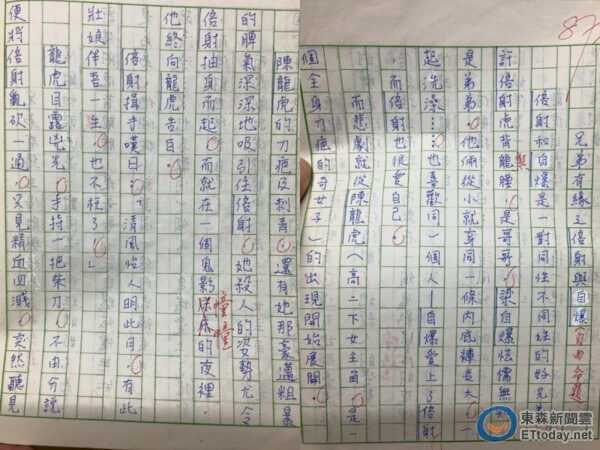 87
兄弟有緣之倍射與自爆(自由命題)
倍射和自爆是一對同性不同姓的好兄弟
許倍射虎背熊腰,是哥哥。梁自爆怯懦無
是弟弟。他倆從小就穿同一條內底褲長大,一
起洗澡……也喜歡同一個人—自爆愛上了倍射
而倍射也很愛自己。
而悲劇就從陳龍虎(高二下女主角,是一
個全身刀疤的奇女子)的出現開始展開。
陳龍虎的刀疤及刺青,還有她那豪邁粗暴
的脾氣深深地吸引住倍射。她殺人的姿勢尤令
倍射抽身而起。而就在一個鬼影幢幢的夜裡,
他終向龍虎告白。
倍射揖手嘆曰:「清風怡人明此月。有此
壯娘伴吾一生,也不枉了。」
龍虎目露兇光,手持一把柴刀,不由分說
便將倍射亂砍一通。只見精血四濺,突然聽見
東森新聞雲
ETtoday.net